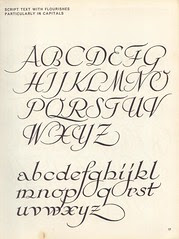 SCRIPT TEXT WITH FLOURISHES
PARTICULARLY IN CAPITALS
ABCDEFG
HIJKLMNO
PQRSTUV
WXYZ
abcdefghijkl
mnopqrst
uvwxyz